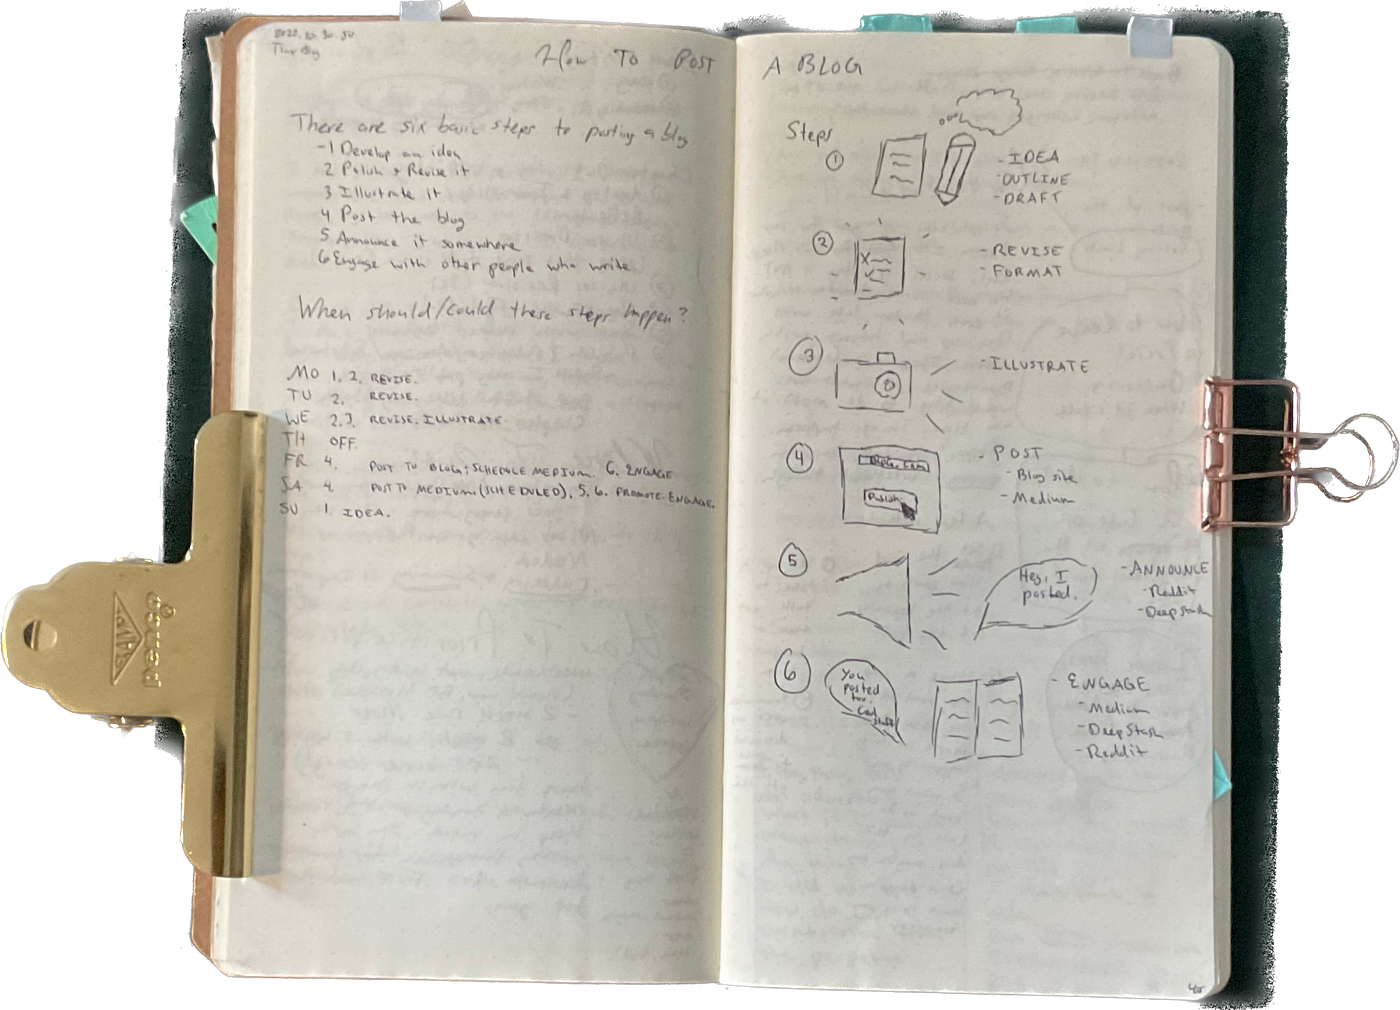 Thursday
How To Post
There are six basic steps to posting a blog
-1 Develop an idea
2 Polish + Revise it
3 Illustrate it
4 Post the blog
5 Announce it somewhere
6 Engage with other people who write
When should/could these steps happen?
MO 1, 2, REVISE.
TU 2. REVISE.
WE 2.3. REVISE. ILLUSTRATE.
TH OFF.
FR 4. POST TO BLOG; SCHEDULE MEDIUM. 6. ENGAGE
SA 4. POST TO MEDIUM (SCHEDULED), 5, 6. PROMOTE. ENGAGE.
SU 1. IDEA.
A BLOG
Steps
1
- IDEA
- OUTLINE
- DRAFT
2
- REVISE
- FORMAT
3
- ILLUSTRATE
4
- POST
- Blog site
- Medium
Publish
5
Hey, I
posted.
- ANNOUNCE
- Reddit
- DeepStash
6
You
posted
too.
Cool
stuff
- ENGAGE
- Medium
- DeepStash
- Reddit